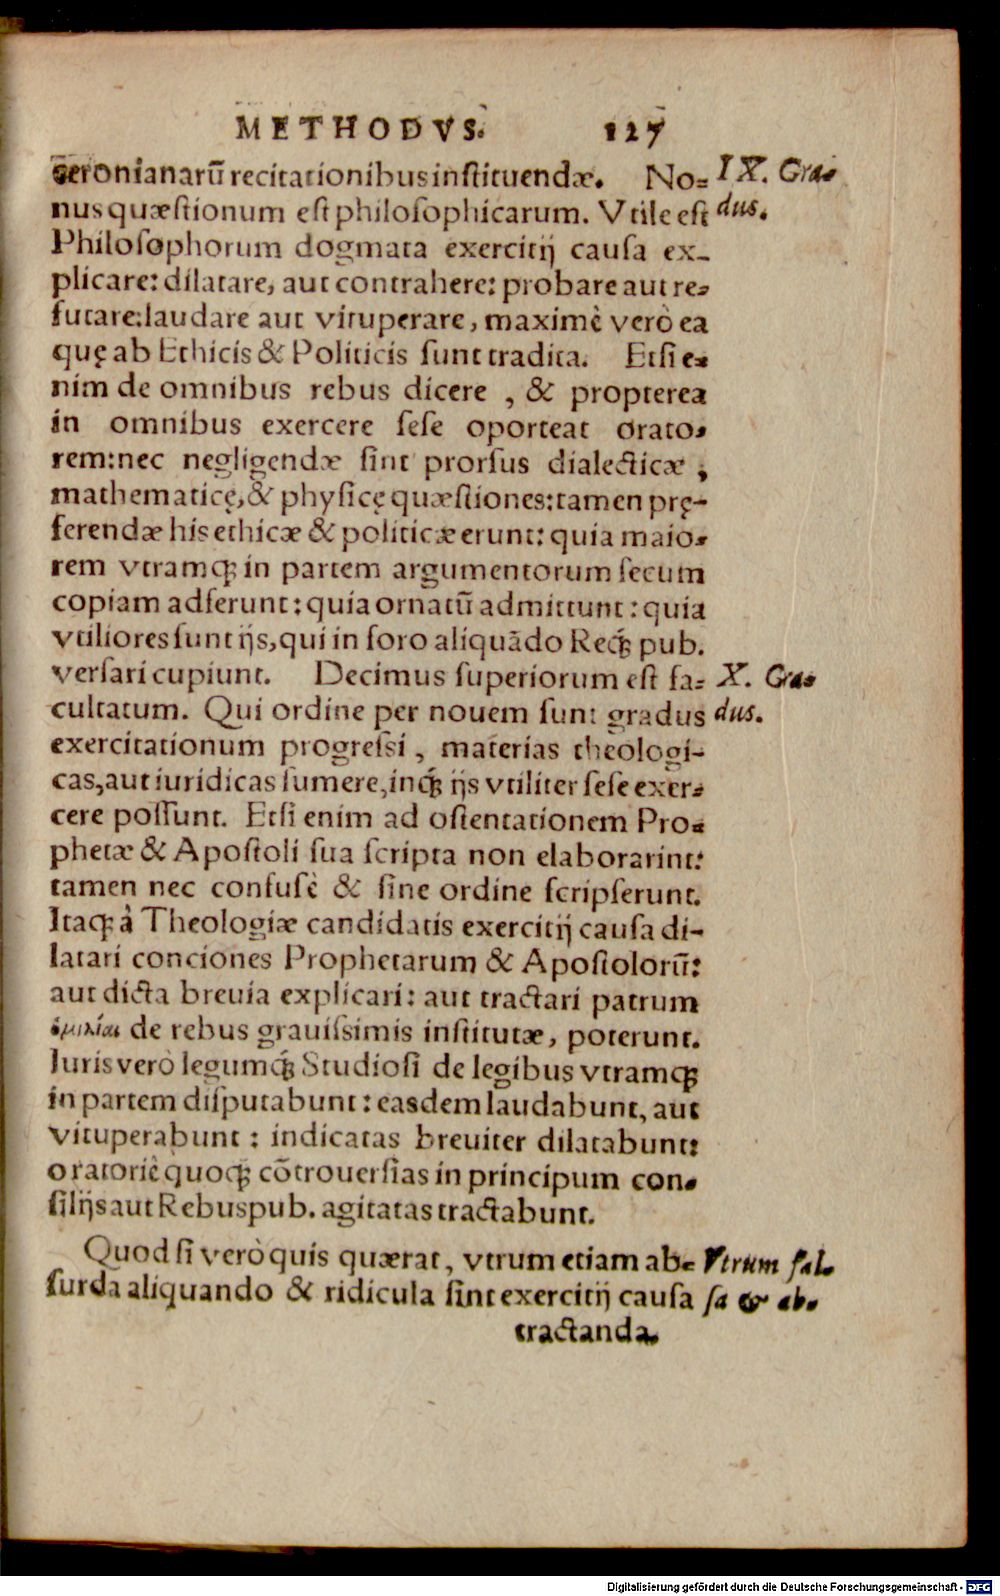 METHODVS. 127
ceronianarū recitationibus instituendæ. No= IX. Gra=
nus quæstionum est philosophicarum. Vtile est dus.
Philosophorum dogmata exercitij causa ex-
plicare: dilatare, aut contrahere: probare aut re=
futare: laudare aut vituperare, maximè verò ea
quę ab Ethicis & Politicis sunt tradita. Etsi e=
nim de omnibus rebus dicere , & propterea
in omnibus exercere sese oporteat orato=
rem: nec negligendæ sint prorsus dialecticæ ,
mathematicę, & physicę quæstiones: tamen prę-
ferendæ his ethicæ & politicæ erunt: quia maio=
rem vtramq; in partem argumentorum secum
copiam adferunt: quia ornatū admittunt: quia
vtiliores sunt ijs, qui in foro aliquādo Req́; pub.
versari cupiunt. Decimus superiorum est fa= X. Gra=
cultatum. Qui ordine per nouem sunt gradus dus.
exercitationum progressi , materias theologi-
cas, aut iuridicas sumere, inq́; ijs vtiliter sese exer=
cere possunt. Etsi enim ad ostentationem Pro=
phetæ & Apostoli sua scripta non elaborarint:
tamen nec confusè & sine ordine scripserunt.
Itaq; à Theologiæ candidatis exercitij causa di-
latari conciones Prophetarum & Apostolorū:
aut dicta breuia explicari: aut tractari patrum
ὁμιλίαι de rebus grauissimis institutæ, poterunt.
Iuris verò legumq́; Studiosi de legibus vtramq;
in partem disputabunt: easdem laudabunt, aut
vituperabunt : indicatas breuiter dilatabunt:
oratoriè quoq; cōtrouersias in principum con=
silijs aut Rebuspub. agitatas tractabunt.
Quod si verò quis quærat, vtrum etiam ab= Vtrum fal=
surda aliquando & ridicula sint exercitij causa sa & ab=
tractanda.
Digitalisierung gefördert durch die Deutsche Forschungsgemeinschaft - DFG